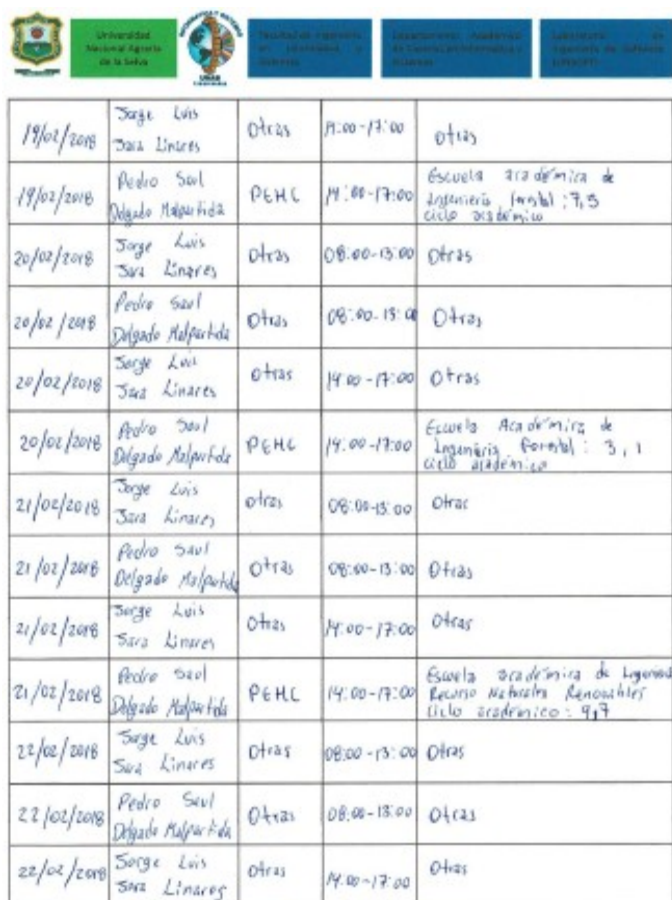 Universidad
Nacional Agraria
de la Selva
UNAS
19/02/2018
Jorge Luis
Jara Linares
Otras
14:00-17:00
Otras
19/02/2018
Pedro Saul
Delgado Malpartida
PEHC
14:00-17:00
Escuela académica de
Ingeniería forestal: 7,5
ciclo académico
20/02/2018
Jorge Luis
Jara Linares
Otras
08:00-13:00
Otras
20/02/2018
Pedro Saul
Delgado Malpartida
Otras
08:00-13:00
Otras
20/02/2018
Jorge Luis
Jara Linares
Otras
14:00-17:00
Otras
20/02/2018
Pedro Saul
Delgado Malpartida
PEHC
14:00-17:00
Escuela Académica de
Ingeniería Forestal: 3, 1
ciclo académico
21/02/2018
Jorge Luis
Jara Linares
otras
08:00-13:00
Otras
21/02/2018
Pedro Saul
Delgado Malpartida
Otras
08:00-13:00
Otras
21/02/2018
Jorge Luis
Jara Linares
Otras
14:00-17:00
Otras
21/02/2018
Pedro Saul
Delgado Malpartida
PEHC
14:00-17:00
Escuela académica de Ingeniería
Recurso Naturales Renovables
Ciclo académico: 9,7
22/02/2018
Jorge Luis
Jara Linares
Otras
08:00-13:00
Otras
22/02/2018
Pedro Saul
Delgado Malpartida
Otras
08:00-13:00
Otras
22/02/2018
Jorge Luis
Jara Linares
Otras
14:00-17:00
Otras